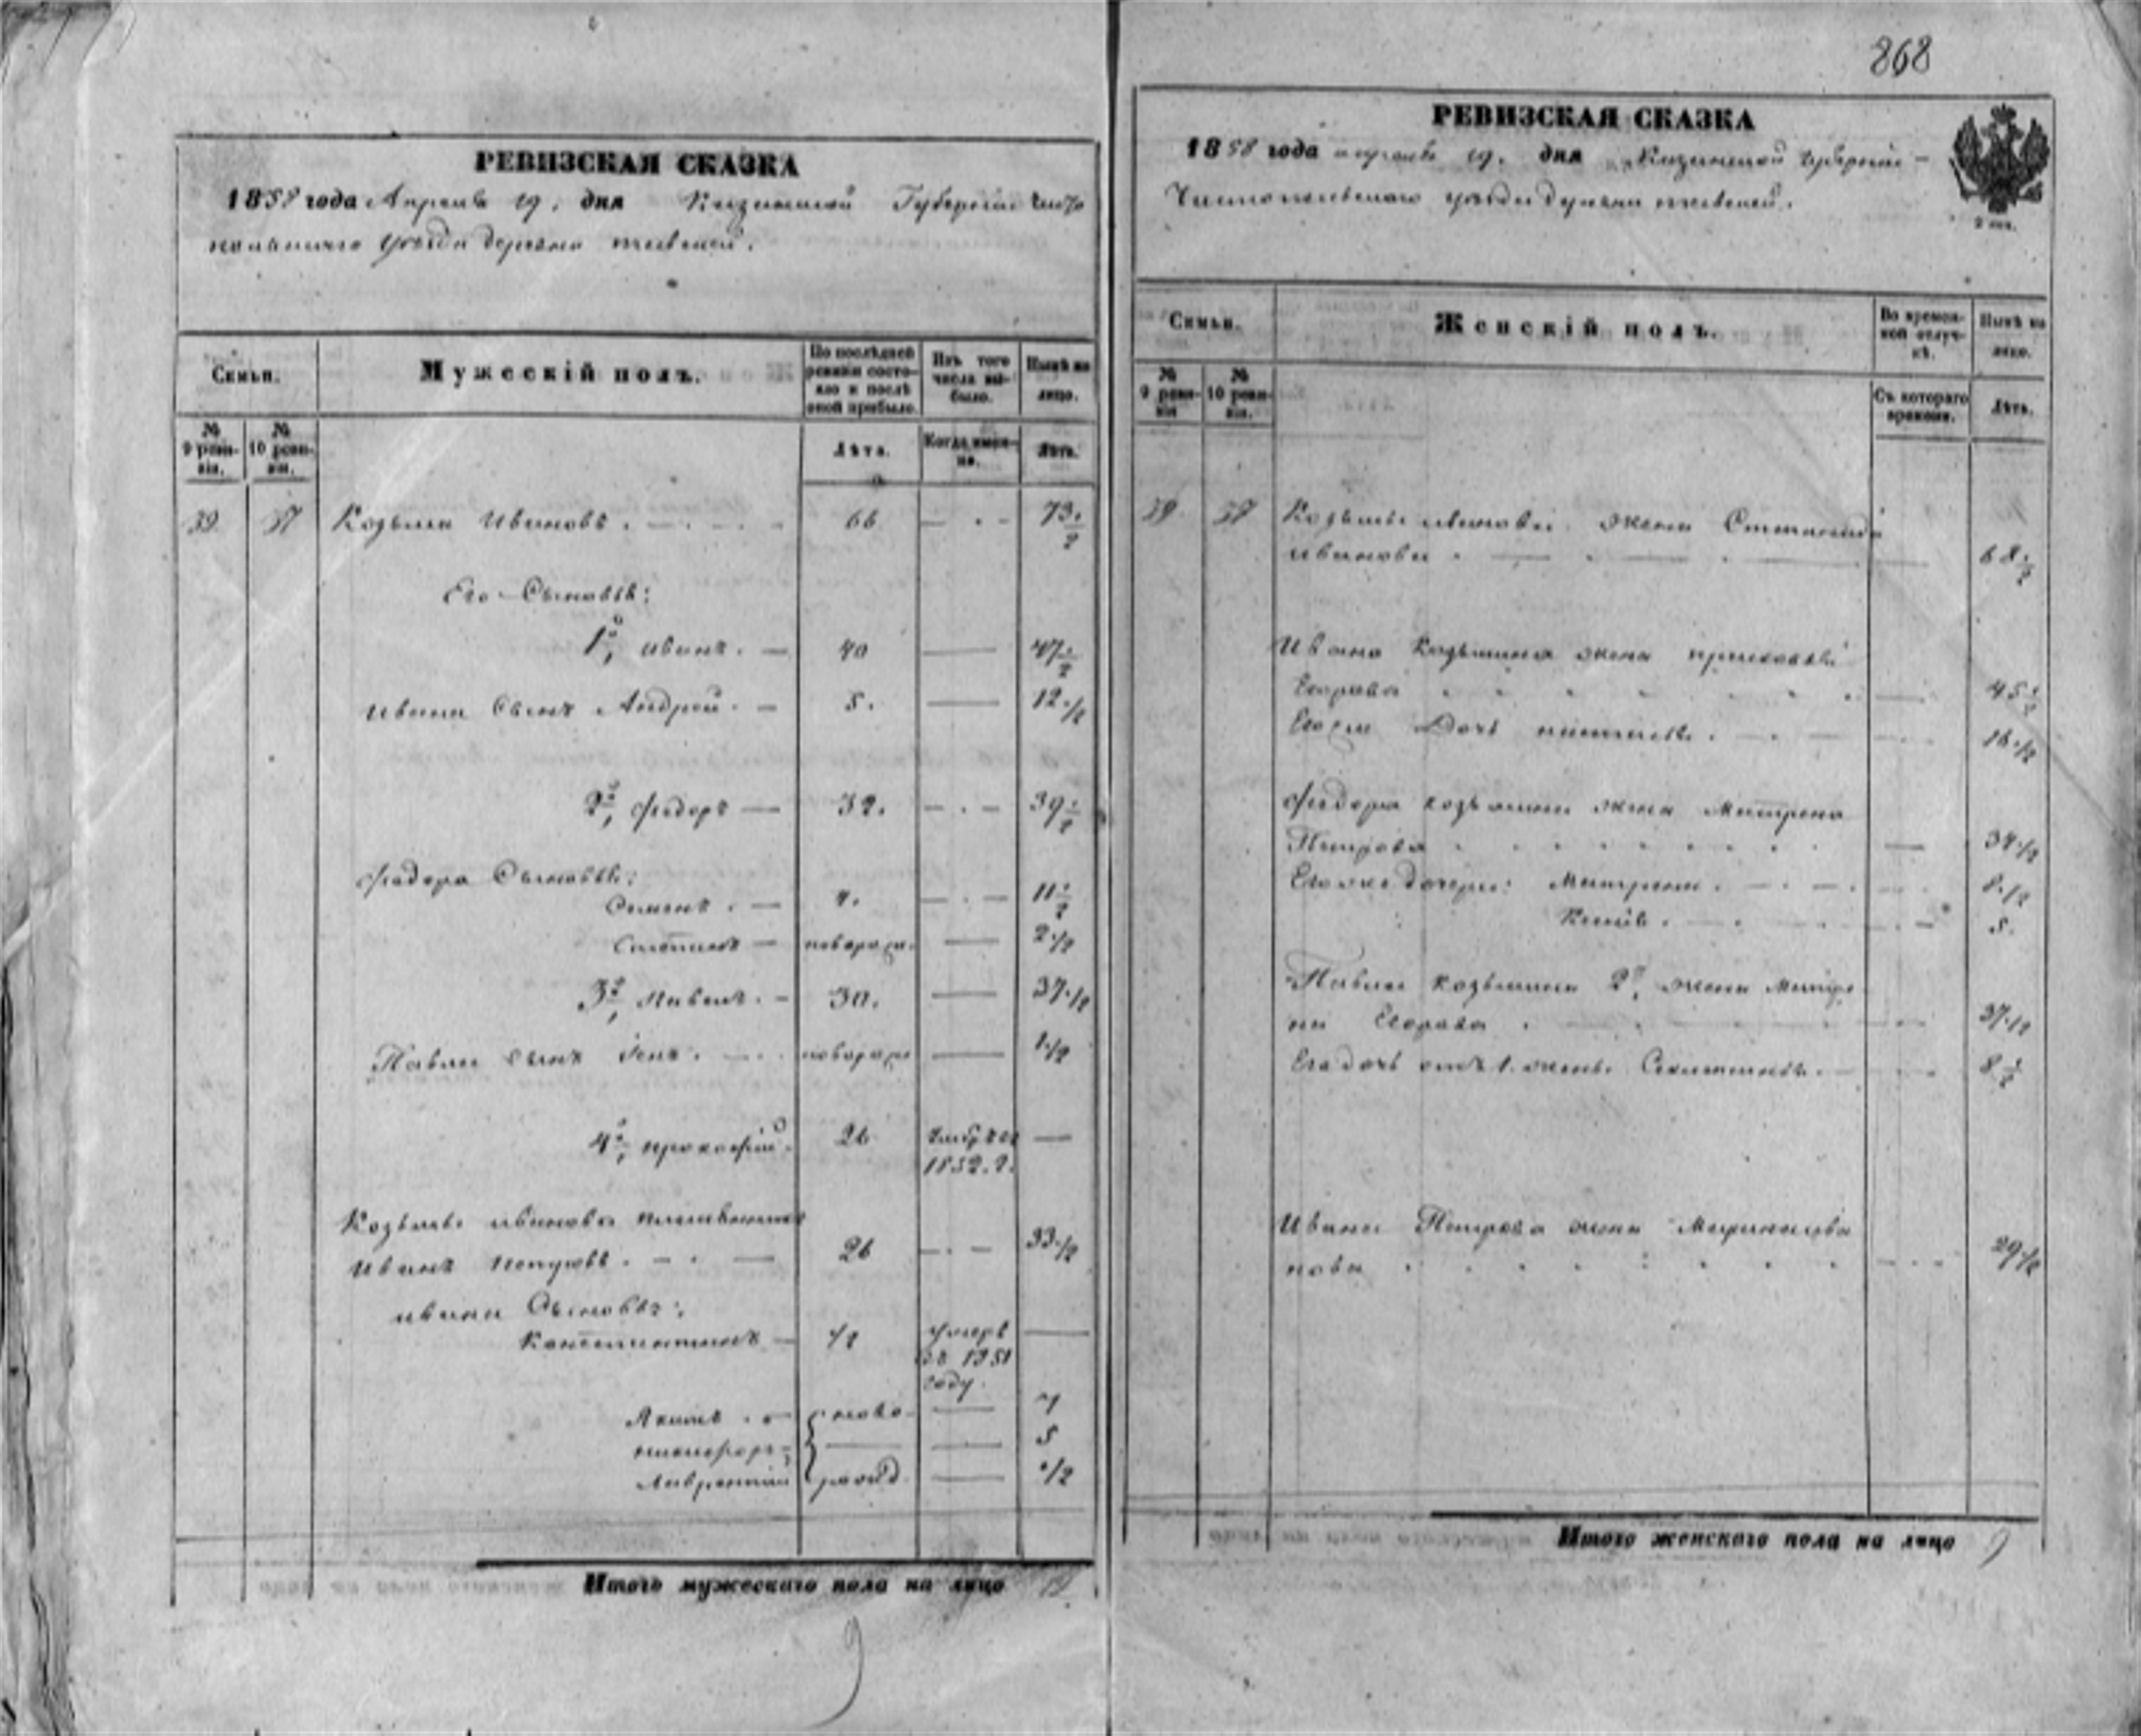 868
РЕВИЗСКАЯ СКАЗКА
1858 года Апреля 19. дня Казанской Губернiи Чисто
польскаго уезда деревни
Семьи.
Мужескiй полъ.
По послѣдней ревизiи состояло и послѣ оной прибыло.
Изъ того числа выбыло.
Нынѣ на лицо.
№ 9 ревизiи.
№ 10 ревизiи.
Лѣта.
Когда именно.
Лѣта.
39 37 Козьма Ивановъ 66 73 1/2
Его Сыновья:
1й Иванъ 40 47 1/2
Ивана Сынъ Андрей 5. 12 1/2
2й Федоръ 32. 39 1/2
Федора Сыновья:
Семенъ 4. 11 1/2
Степанъ новорож. 2 1/2
3й Павелъ 30. 37 1/2
Павла Сынъ новорож 1 1/2
4й Прокофiй 26 1852. г.
Козьмы Иванова племянникъ
Иванъ Петровъ 26 33 1/2
Ивана Сыновья:
Константинъ 1/2 умеръ
въ 1851
году.
Акимъ ново 7
Никифоръ 5
Лаврентiй рожд 1/2
Итого мужескаго пола на лицо
9
РЕВИЗСКАЯ СКАЗКА
1858 года апреля 19. дня Казанской Губернiи
Чистопольскаго уезда деревни
2 коп.
Семьи.
Женскiй полъ.
Во временной отлучкѣ.
Нынѣ на лицо.
№ 9 ревизiи
№ 10 ревизiи.
Съ котораго времени.
Лѣта.
39 37 Козьмы Иванова жена Степанида
Иванова 68 1/2
Ивана Козьмина жена Прасковья
Егорова 45 1/2
Его дочь 16 1/2
Федора Козьмина жена Матрена
Петрова 34 1/2
Его же дочери: Матрена 8 1/2
5.
Павла Козьмина 2я жена Матре
на Егорова 37 1/2
Его дочь отъ 1. жены 8 1/2
Ивана Петрова жена
нова 29 1/2
Итого женскаго пола на лицо 9